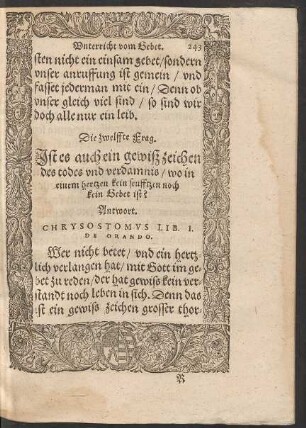 Vnterricht vom Gebet. 243
sten nicht ein einsam gebet/sondern
vnser anruffung ist gemein / vnd
fasset jederman mit ein / Denn ob
vnser gleich viel sind / so sind wir
doch alle nur ein leib.
Die zwelffte Frag.
Ist es auch ein gewiß zeichen
des todes vnd verdamnis / wo in
einem hertzen kein seufftzen noch
kein Gebet ist?
Antwort.
CHRYSOSTOMVS LIB. I.
DE ORANDO.
Wer nicht betet/ vnd ein hertz
lich verlangen hat/ mit Gott im ge
bet zu reden/ der hat gewiß kein ver
standt noch leben in sich. Denn das
ist ein gewiß zeichen grosser thor-
R